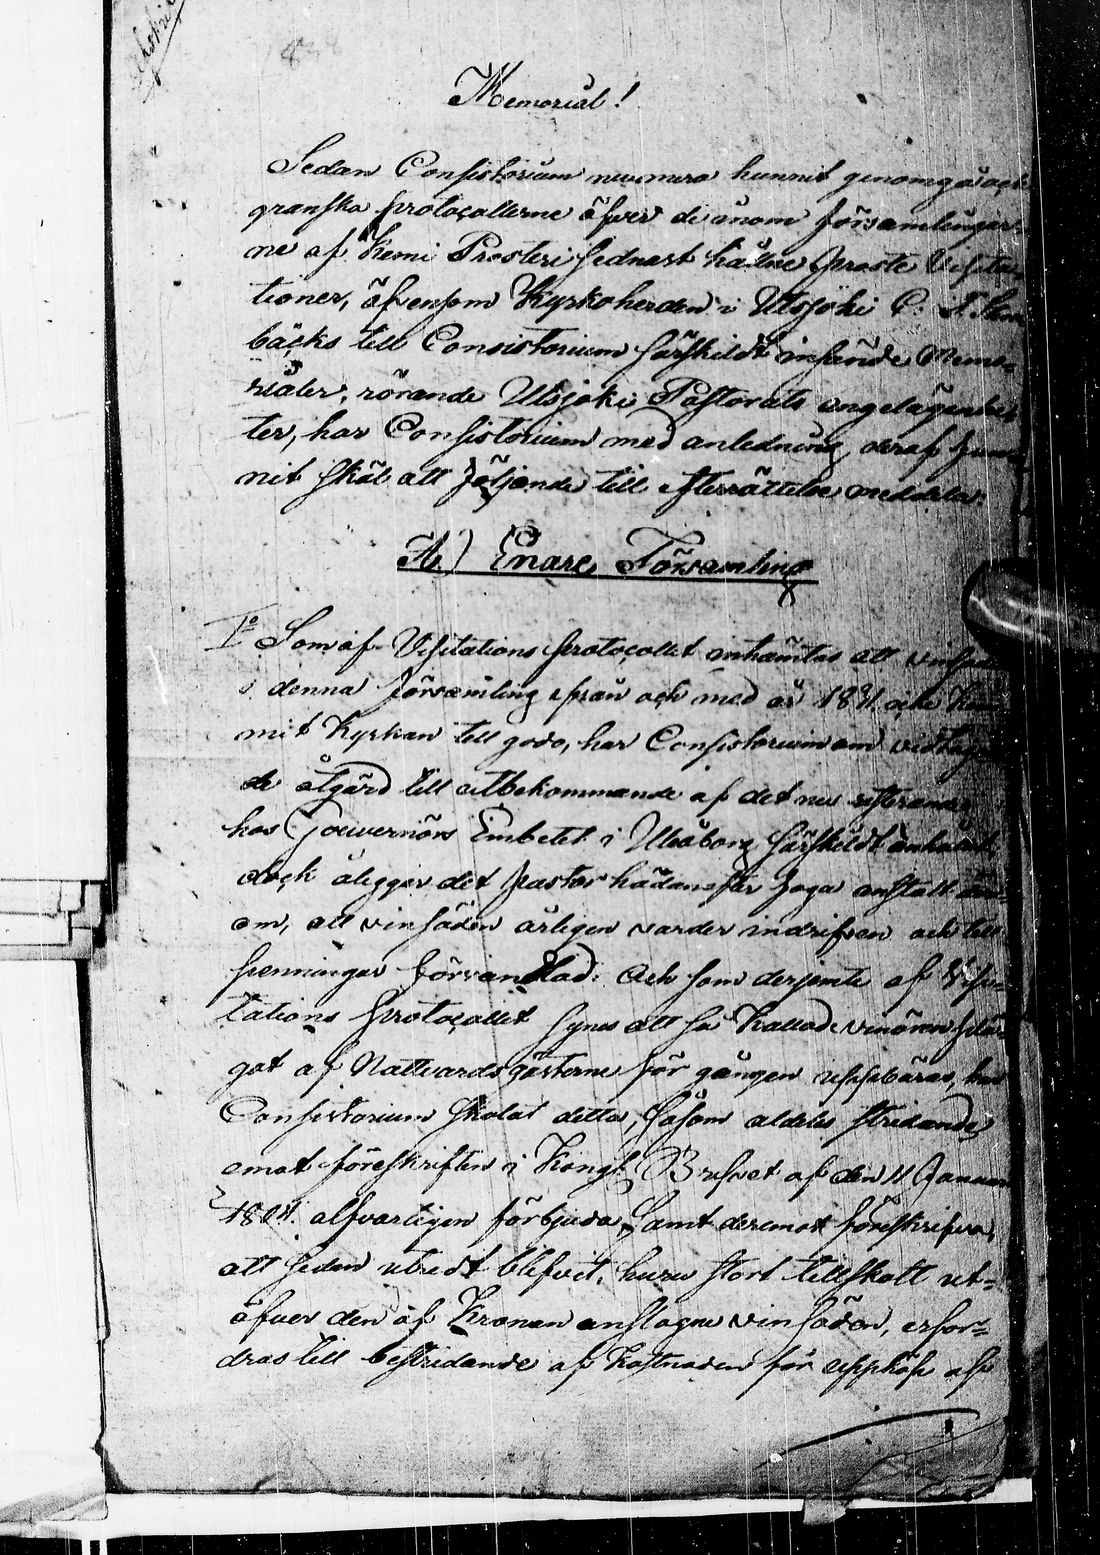 1838
Memorial!
Sedan Consistorium nunmera hunnit genomgå och
granska protocollerne öfver de inom Församlingar-
ne af Kemi Prosteri sednast hållne Proste Visita-
tioner, äfvensom Kyrkoherden i Utsjoki C. F. Sten
bäcks till Consistorium särskildt insände Memo-
rialer, rörande Utsjoki Pastorats angelägenhe-
ter, har Consistorium med anledning deraf fun-
nit skäl att följande till efterrättelse meddela:
A.) Enare Församling
1o Som af Visitations protocollet inhämtas att vinsäden
i denna församling ifrån och med år 1831 icke kom-
mit Kyrkan till godo, har Consistorium om vidtagan-
de åtgärd till utbekommande af det nu resterande
hos Gouvernörs Embetet i Uleåborg särskildt anhållit,
dock åligger det Pastor hädanefter foga anstalt där-
om, att vinsäden årligen varder indrifven och till
penningar förvandlad: Och som derjemte af Visi-
tations protocollet synes att så kallade vinören
af Nattvardsgästerne för gången uppbäras, har
Consistorium skolat detta, såsom aldeles stridande
emot föreskriften i Kongl. Brefvet af den 11 Januari
alfvarligen förbjuda, samt deremot föreskrifva,
att sedan utredt blifvit, huru stort tillskott ut-
öfver den af Kronan anslagne vinsäden, erfor-
dras till bestridande af kostnaden för uppköp af